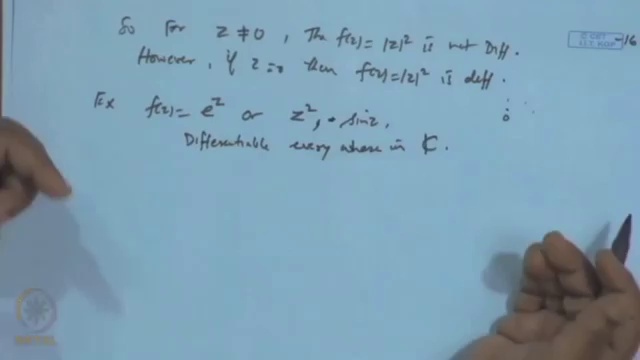 So For z ≠ 0, The f(z) = |z|² is not Diff.
However, if z = 0 then f(z) = |z|² is diff.
Ex f(z) = e^z or z², sinz,
Differentiable every where in ₵.
© CET
I.I.T. KGP
-16
0
NPTEL